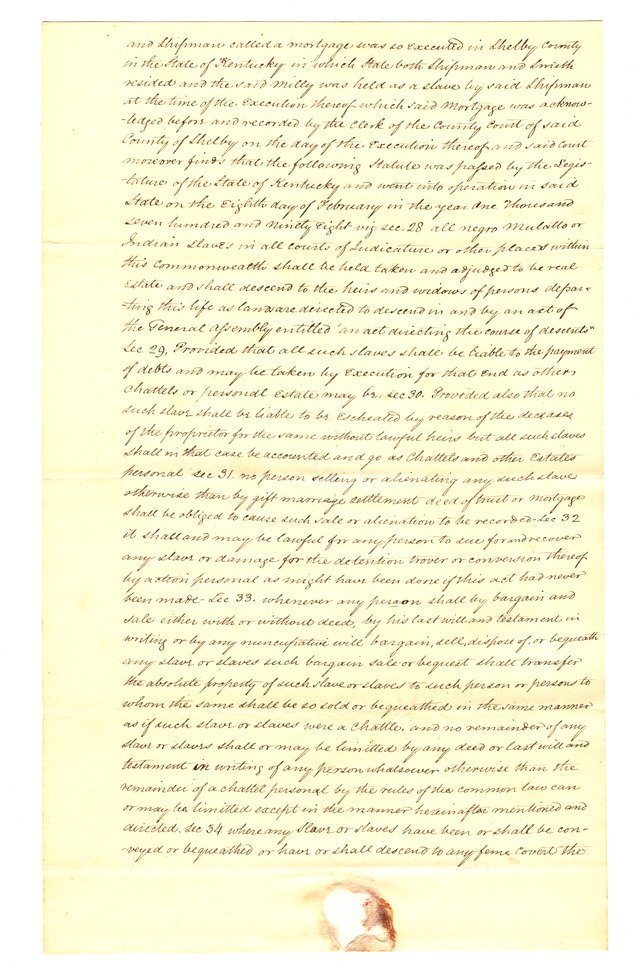 and Shipman called a mortgage was so executed in Shelby County
in the State of Kentucky in which State both Shipman and Smith
resided and the said Milly was held as a slave by said Shipman
at the time of the Execution thereof which said Mortgage was acknow-
-ledged before and recorded by the Clerk of the County Court of said
County of Shelby on the day of the Execution thereof and said court
moreover finds that the following Statute was passed by the Legis-
-lature of the State of Kentucky and went into operation in said
State on the Eighth day of February in the year One Thousand
seven hundred and Ninety Eight viz sec. 28 all negro Mulatto or
Indian slaves in all courts of Judicature or other places within
this Commonwealth shall be held taken and adjudged to be real
Estate and shall descend to the heirs and widows of persons depar-
-ting this life as lands are directed to descend in and by an act of
the General Assembly entitled "an act directing the course of descents"
Sec 29, Provided that all such slaves shall be liable to the payment
of debts and may be taken by Execution for that End as other
Chattels or personal Estate may be, Sec 30. Provided also that no
such slave shall be liable to be Escheated by reason of the decease
of the proprietor for the same without lawful heirs but all such slaves
shall in that case be accounted and go as Chattels and other Estates
personal Sec 31. no person selling or alienating any such slave
otherwise than by gift marriage settlement deed of trust or mortgage
shall be obliged to cause such sale or alienation to be recorded - Sec 32
it shall and may be lawful for any person to sue for and recover
any slave or damage for the detention trover or conversion thereof
by action personal as might have been done if this act had never
been made - Sec 33. whenever any person shall by bargain and
sale either with or without deed, by his last will and testament in
writing or by any nuncupative will bargain, sell, dispose of, or bequeath
any slave or slaves such bargain sale or bequest shall transfer
the absolute property of such slave or slaves to such person or persons to
whom the same shall be so sold or bequeathed in the same manner
as if such slave or slaves were a chattle, and no remainder of any
slave or slaves shall or may be limitted by any deed or last will and
testament in writing of any person whatsoever otherwise than the
remainder of a chattel personal by the rules of the common law can
or may be limitted except in the manner herein after mentioned and
directed. Sec 34 where any slave or slaves have been or shall be con-
-veyed or bequeathed or have or shall descend to any feme covert the